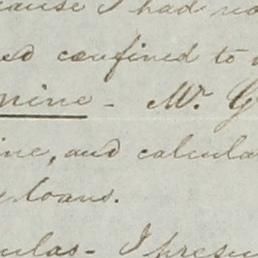 cause I had no
ed confined to
nine - Mr. G
ine, and calcula
loans.
ulas - I presu